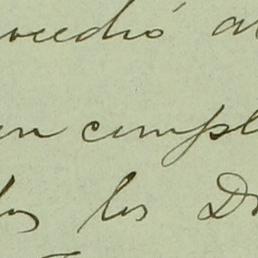 ocedió a
en cumpl
los los D